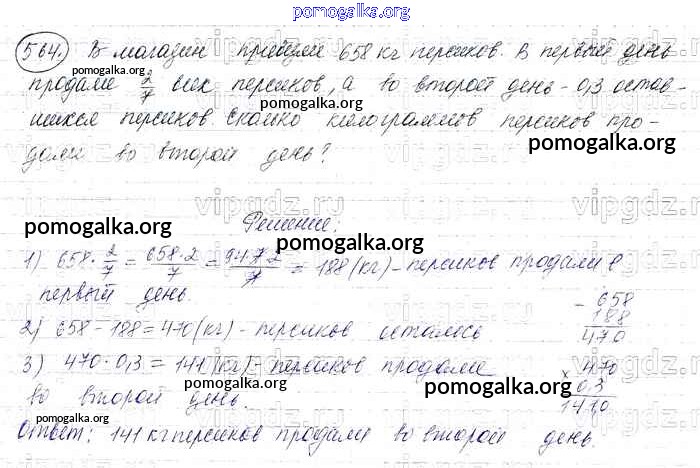 pomogalka.org
564. В магазин привезли 658 кг персиков. В первый день
продали 2/7 всех персиков, а во второй день - 0,3 остав-
шихся персиков. Сколько килограммов персиков про-
дали во второй день?
Решение:
1) 658 · 2/7 = 658·2/7 = 94·7·2/7 = 188 (кг) - персиков продали в
первый день.
2) 658 - 188 = 470 (кг) - персиков осталось
3) 470 · 0,3 = 141 (кг) - персиков продали
во второй день.
Ответ: 141 кг персиков продали во второй день.
- 658
188
470
× 470
0,3
141,0
pomogalka.org
pomogalka.org
pomogalka.org
pomogalka.org
pomogalka.org
pomogalka.org
pomogalka.org
vipgdz.ru
vipgdz.ru
vipgdz.ru